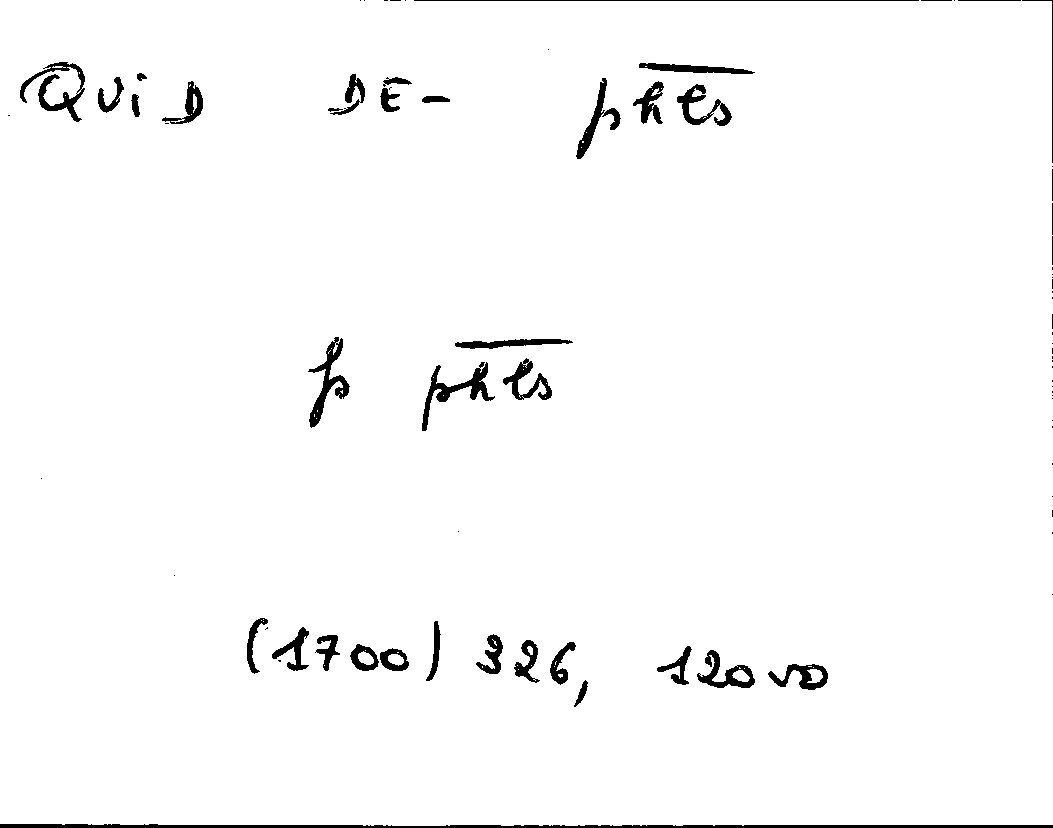 QUiD DE- phls
p phls
(1700) 326, 120 vo